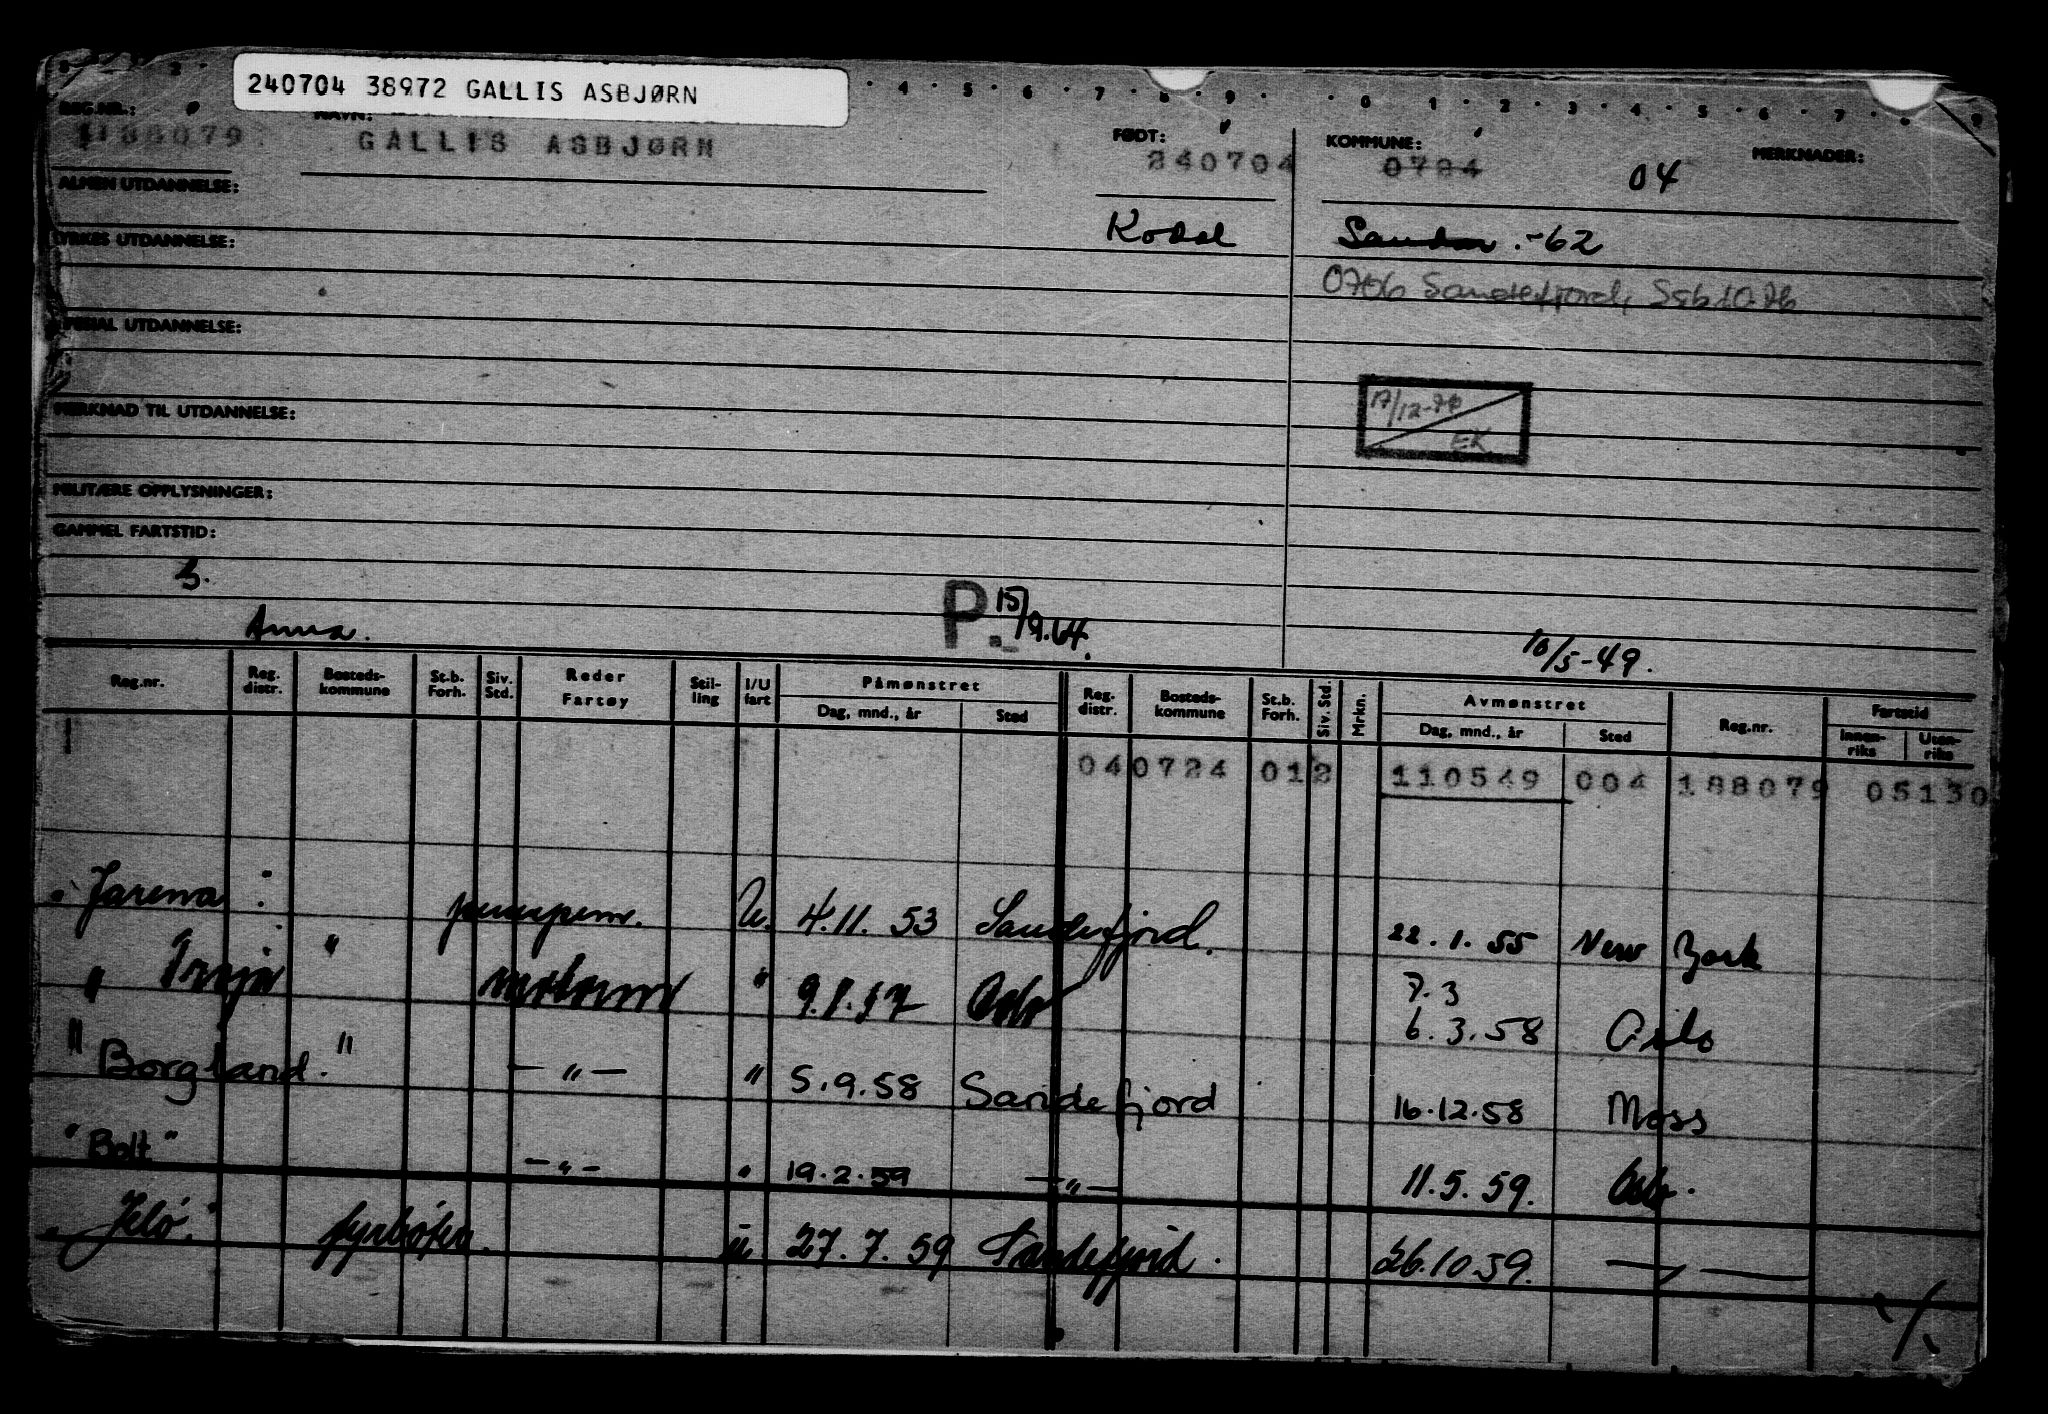 240704 38972 GALLIS ASBJØRN
REG.NR.: NAVN: FØDT: KOMMUNE: MERKNADER:
188079 GALLIS ASBJØRN 240704 0724 04
ALMEN UTDANNELSE:
Kodal Sandar -62
YRKES UTDANNELSE:
0706 Sandefjord,
SPESIAL UTDANNELSE:
17/12-70
EK
MERKNAD TIL UTDANNELSE:
MILITÆRE OPPLYSNINGER:
GAMMEL FARTSTID:
3.
P. 15/9.64.
Anna. 10/5-49.
Reg.nr. Reg. distr. Bosteds-kommune St.b. Forh. Siv. Std. Reder Fartøy Stil-ling I/U fart Påmønstret Dag, mnd., år Sted Reg. distr. Bosteds-kommune St.b. Forh. Siv. Std. Mrkn. Avmønstret Dag, mnd., år Sted Reg.nr. Fartstid Innen-riks Uten-riks
1 04 0724 012 110549 004 188079 05130
"Jarena" pumpem. U. 4.11.53 Sandefjord. 22.1.55 New York
7.3
" Troja " motorm " Oslo 6.3.58 Oslo
" Borgland. " — " — " 5.9.58 Sandefjord 16.12.58 Moss
"Bolt" — " — " 19.2.59 — " — 11.5.59. Oslo.
"Jelö." fyrbøter. U 27.7.59 Sandefjord. 26.10.59. — " —